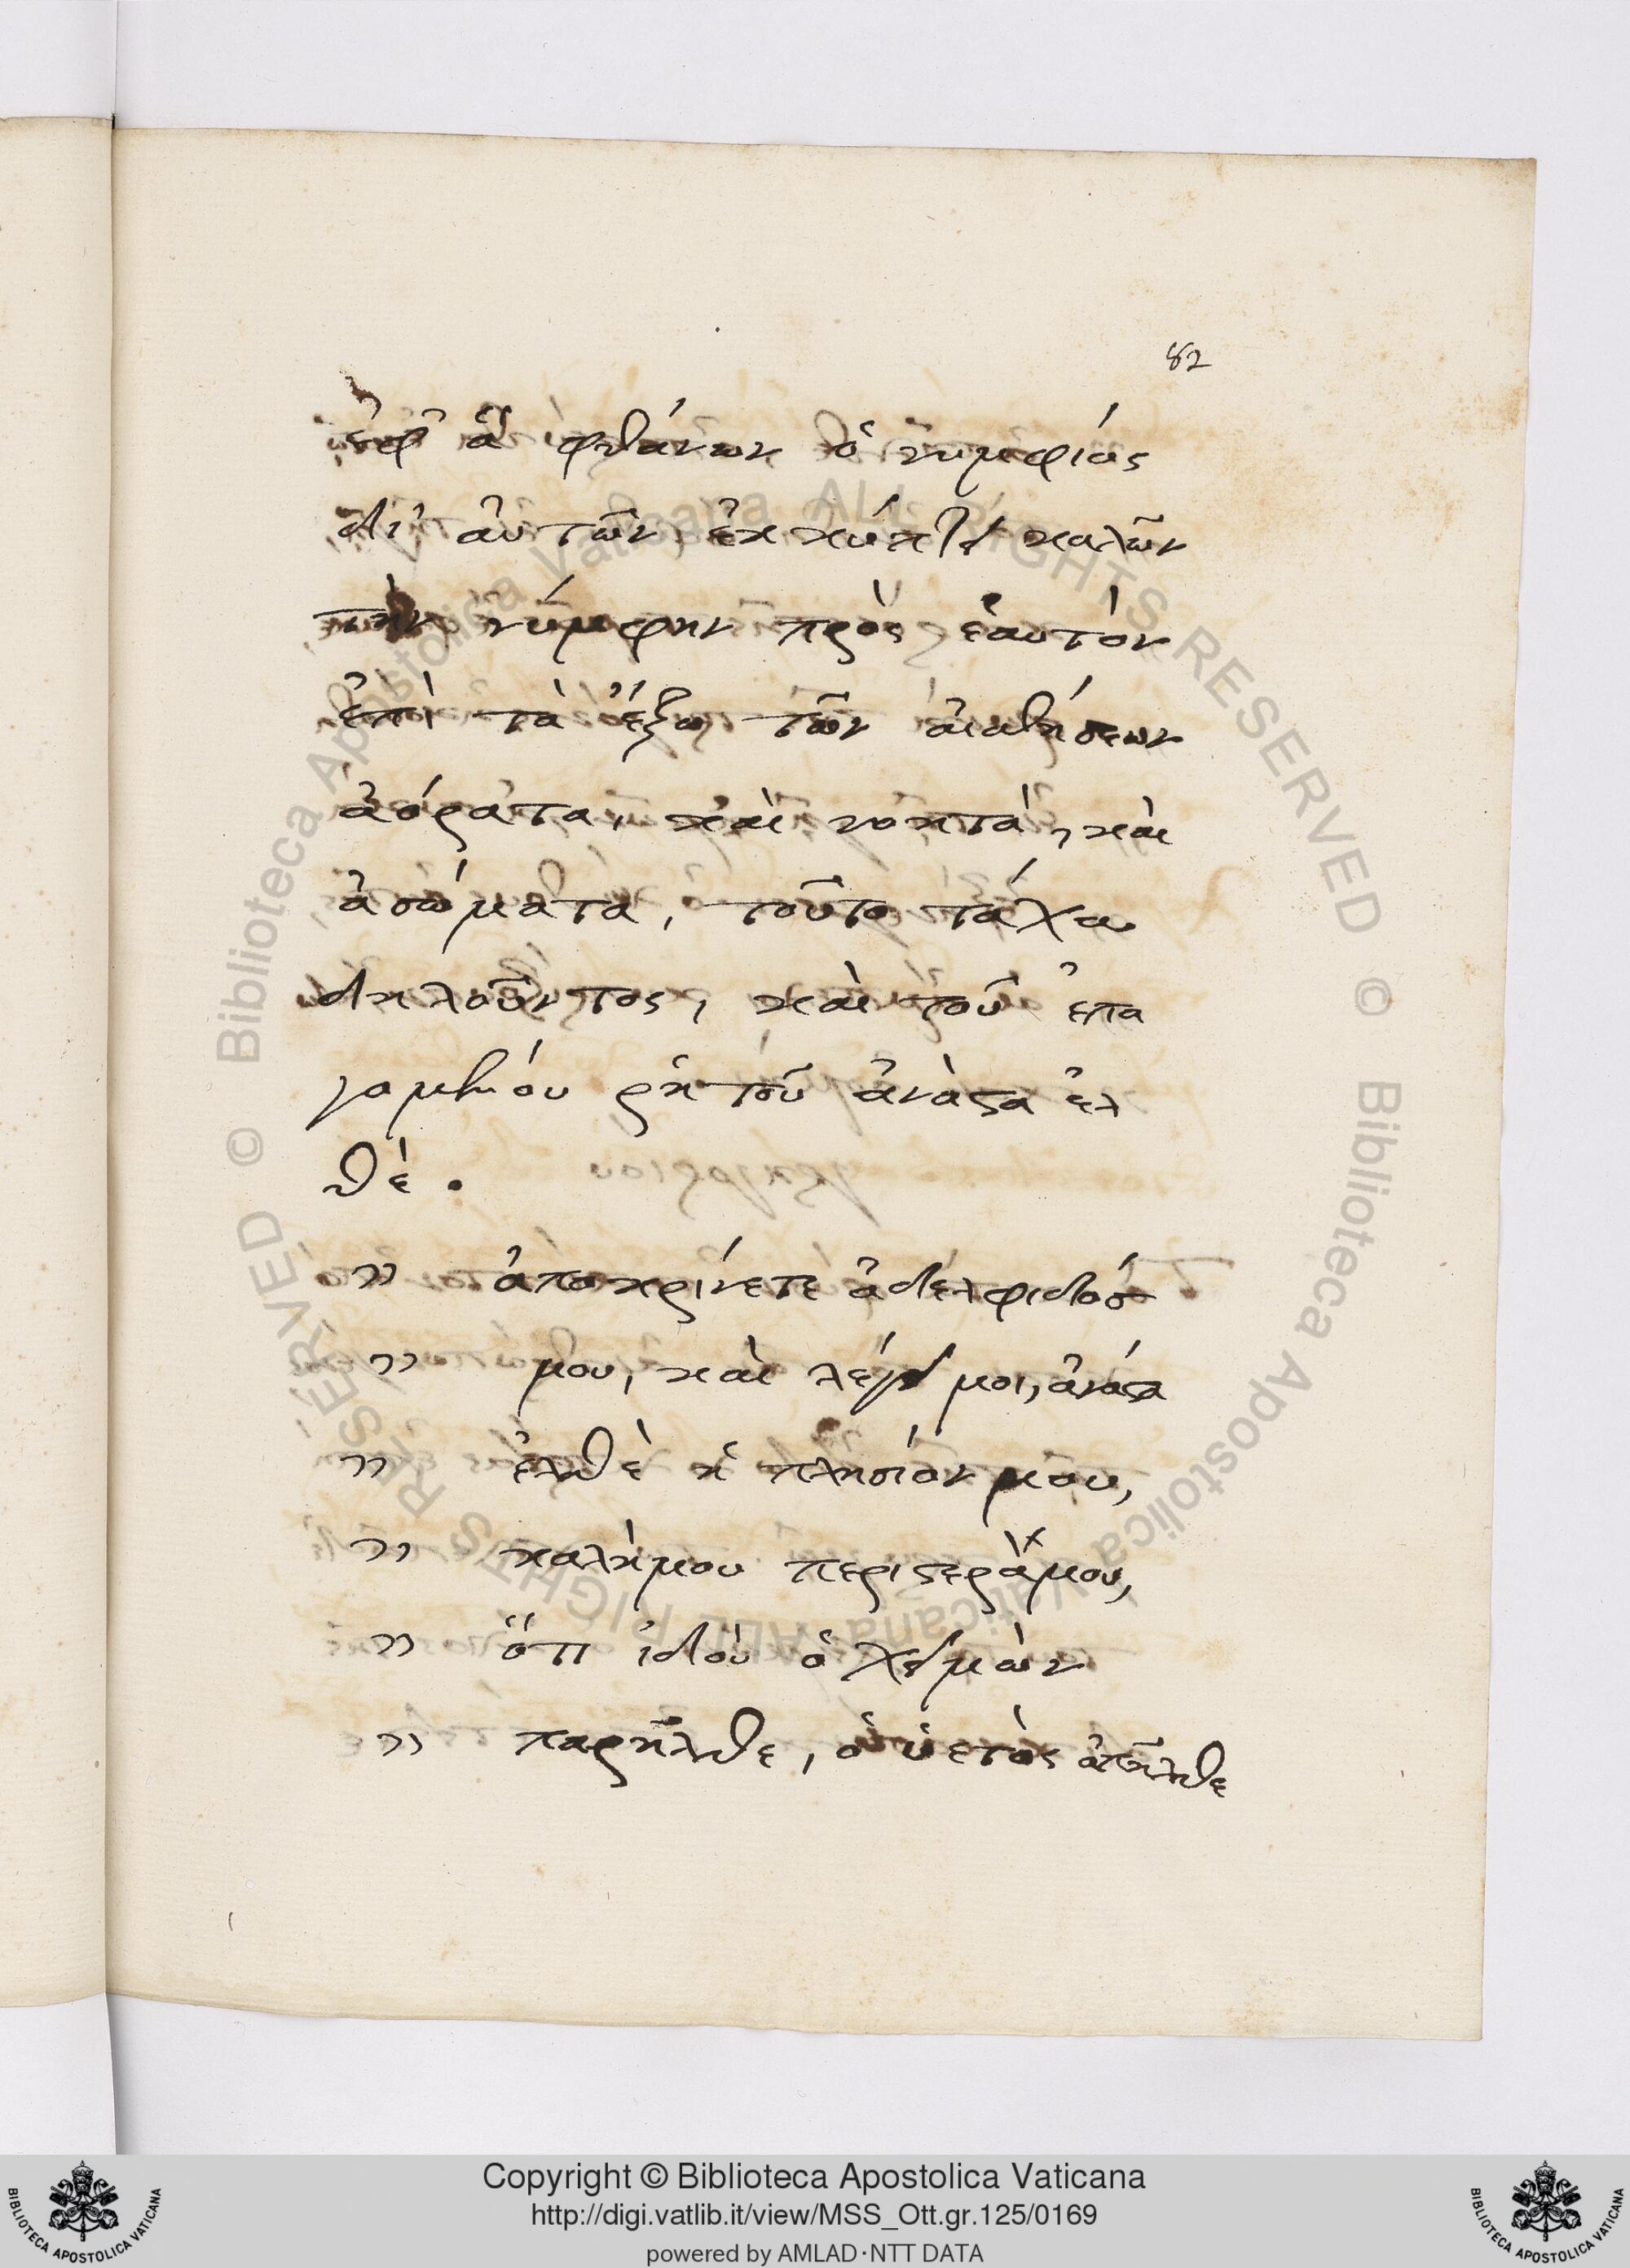 82
ἐφ' ἃ φθάνων ὁ νυμφίος
δι' ἀυτῶν ἐκκύπτει καλῶν
τὴν νύμφην πρὸς ἑαυτὸν
ἐπὶ τὰ ἔξω τῶν ἀισθήσεων
ἀόρατα, καὶ νοητὰ, καὶ
ἀσώματα, τοῦτο τάχα
δηλοῦντος, καὶ τοῦ ἐπα
γομένου ῥητοῦ ἀνάστα ἐλ
θὲ.
" ἀποκρίνετε ἀδελφιδόσ
" μου, καὶ λέγει μοι, ἀνάστα
" ἐλθὲ ἡ πλησίον μου,
" καλήμου περιστερὰ μου,
" ὅτι ἰδοὺ ὁ χειμὼν
" παρῆλθε, ὁ ὑετὸς ἀπῆλθε
Copyright © Biblioteca Apostolica Vaticana
http://digi.vatlib.it/view/MSS_Ott.gr.125/0169
powered by AMLAD·NTT DATA
BIBLIOTECA APOSTOLICA VATICANA
BIBLIOTECA APOSTOLICA VATICANA
© Biblioteca Apostolica Vaticana ALL RIGHTS RESERVED
© Biblioteca Apostolica Vaticana ALL RIGHTS RESERVED